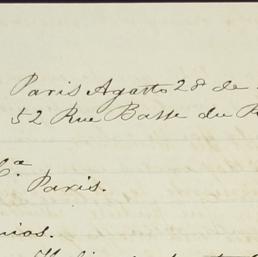 Paris Agatto 28 de
52 Rue Basse du R
C.ª
Paris.
nios.